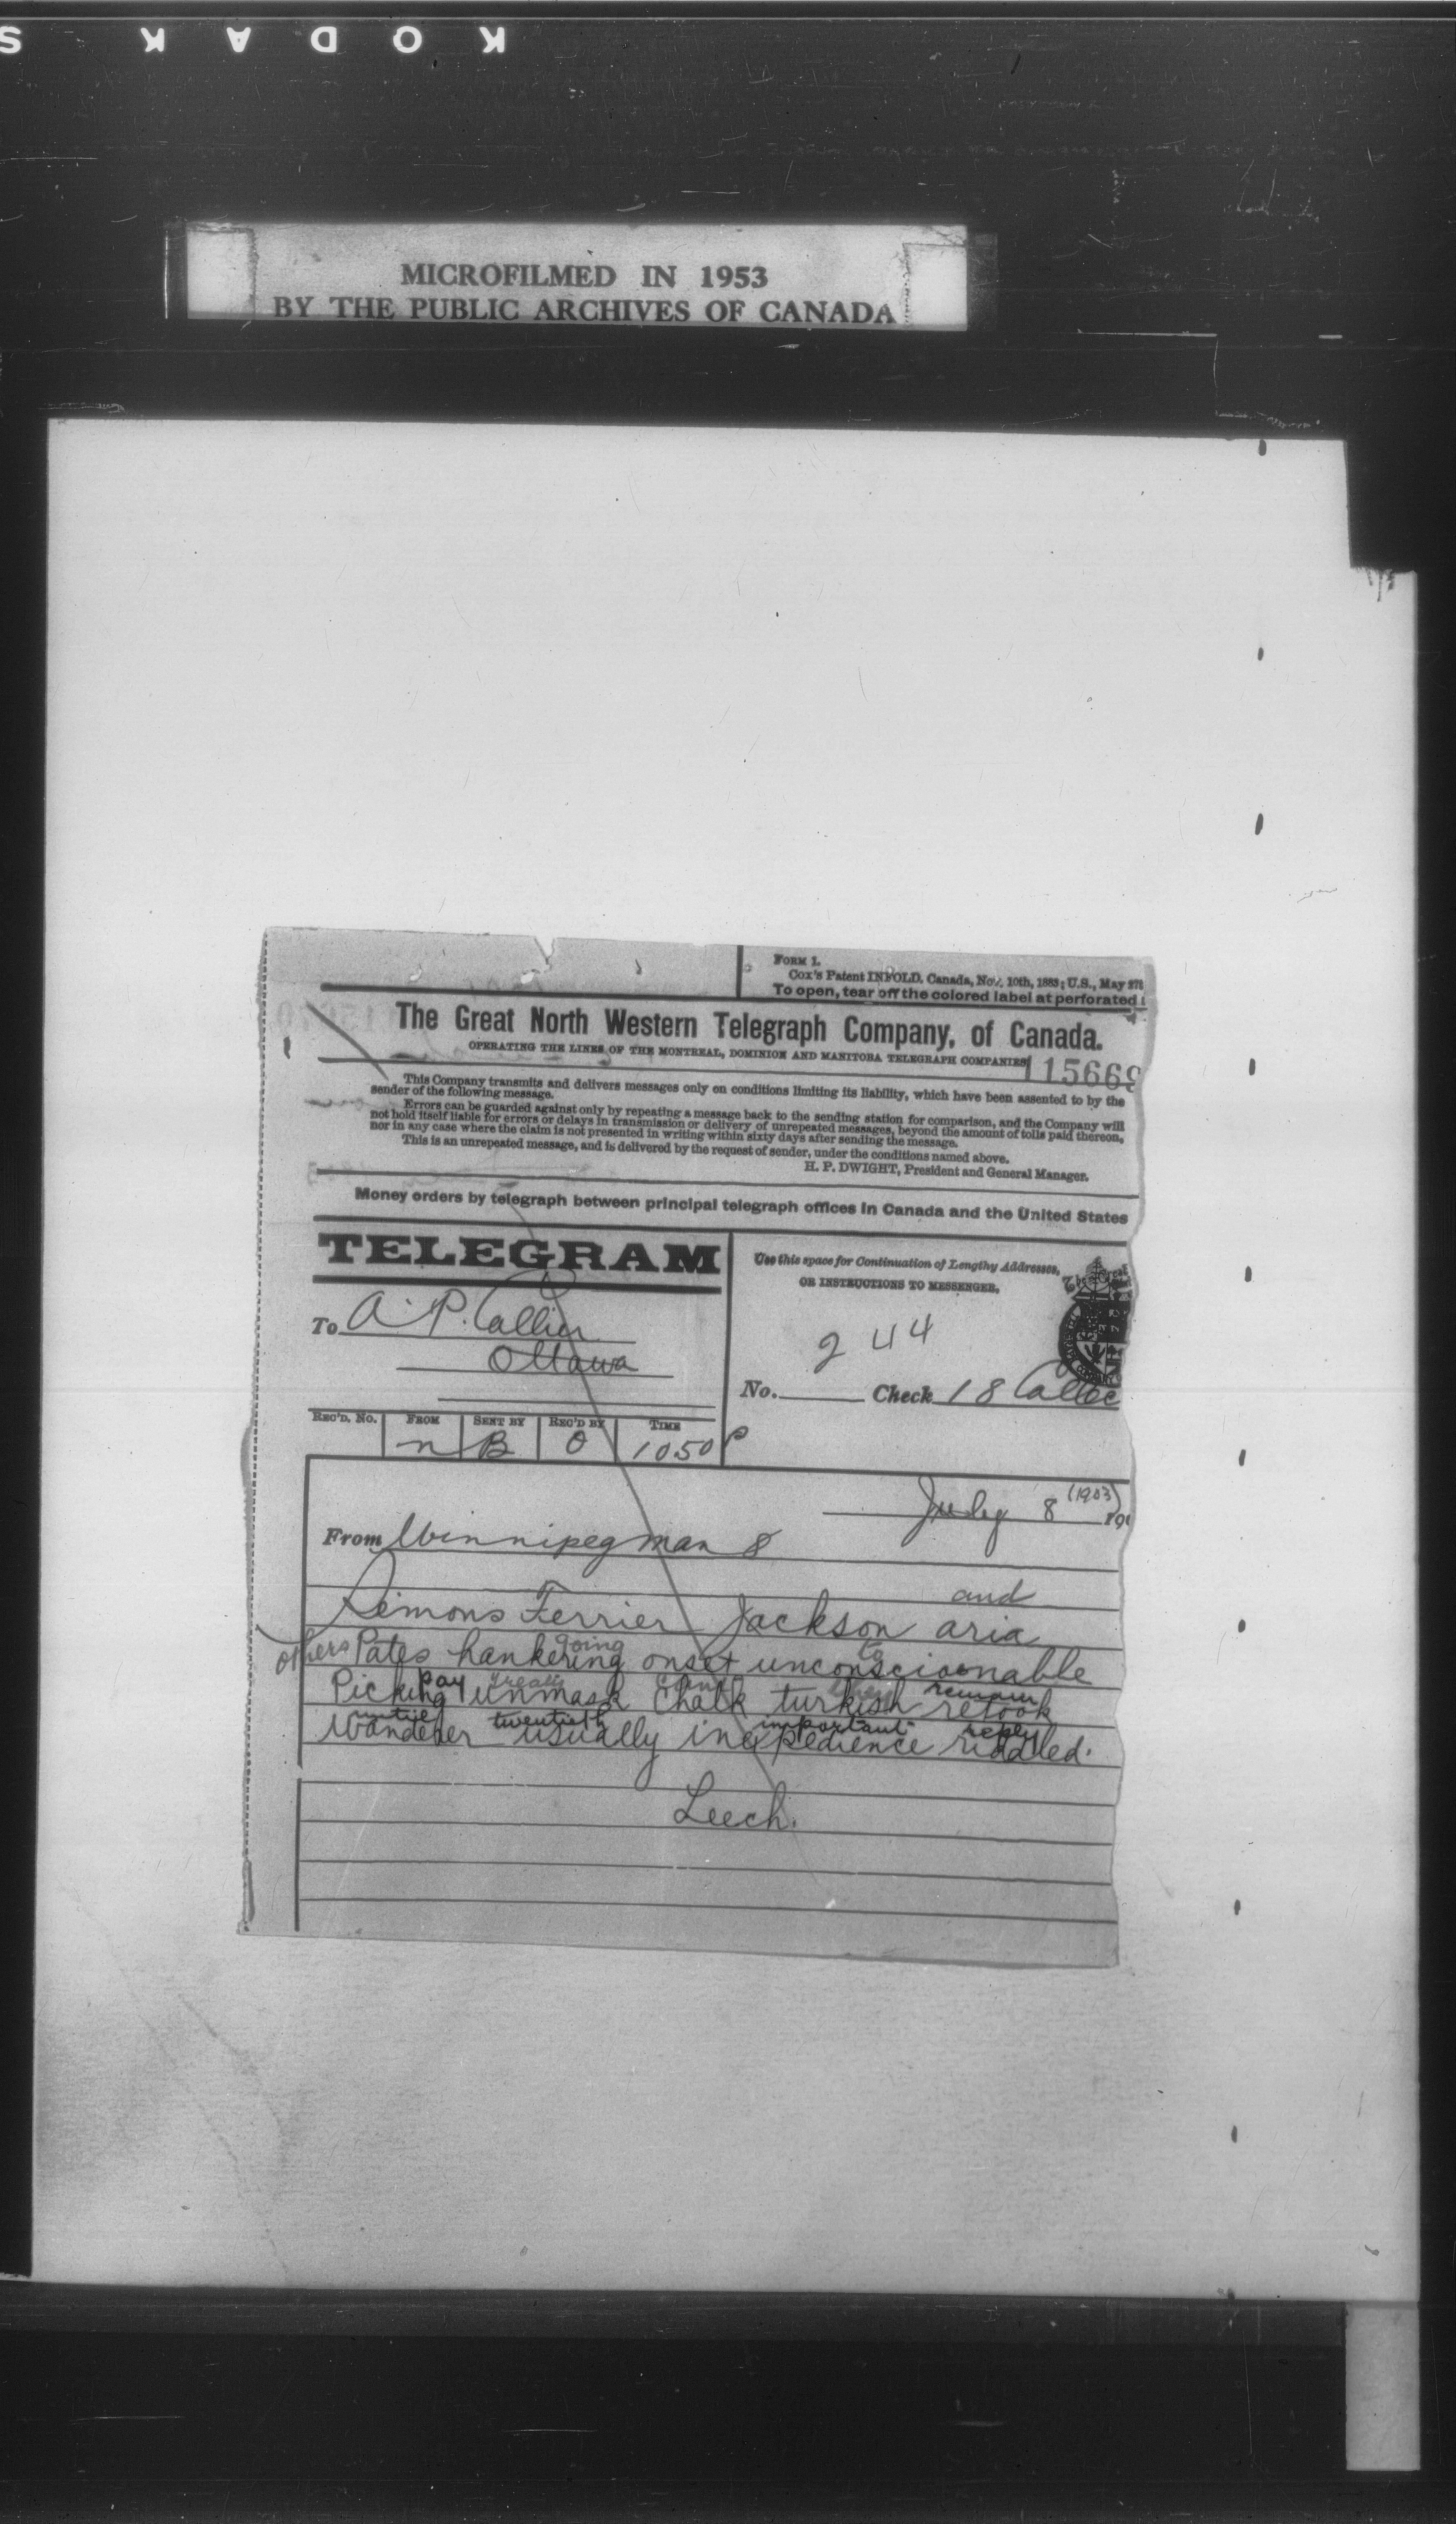 KODAK S
MICROFILMED IN 1953
BY THE PUBLIC ARCHIVES OF CANADA
FORM 1.
Cox's Patent INFOLD. Canada, Nov. 10th, 1883; U.S., May 27
To open, tear off the colored label at perforated
The Great North Western Telegraph Company, of Canada.
OPERATING THE LINES OF THE MONTREAL, DOMINION AND MANITOBA TELEGRAPH COMPANIES
115669
This Company transmits and delivers messages only on conditions limiting its liability, which have been assented to by the
sender of the following message.
Errors can be guarded against only by repeating a message back to the sending station for comparison, and the Company will
not hold itself liable for errors or delays in transmission or delivery of unrepeated messages, beyond the amount of tolls paid thereon,
nor in any case where the claim is not presented in writing within sixty days after sending the message.
This is an unrepeated message, and is delivered by the request of sender, under the conditions named above.
H. P. DWIGHT, President and General Manager.
Money orders by telegraph between principal telegraph offices in Canada and the United States
TELEGRAM
To A. P. Collier
Ottawa
Use this space for Continuation of Lengthy Addresses,
OR INSTRUCTIONS TO MESSENGER.
The Great
244
No. Check 18 Collec
REC'D. No. FROM SENT BY REC'D BY TIME
n B O 1050 P
July 8 (1903) 190
From Winnipeg man 8
and
Simons Ferrier Jackson aria
others going to
Pates hankering onset unconscionable
pay remain
Picking unmask chalk turkish retook
until twentieth important reply
Wanderer usually inexpedience riddled.
Leech.